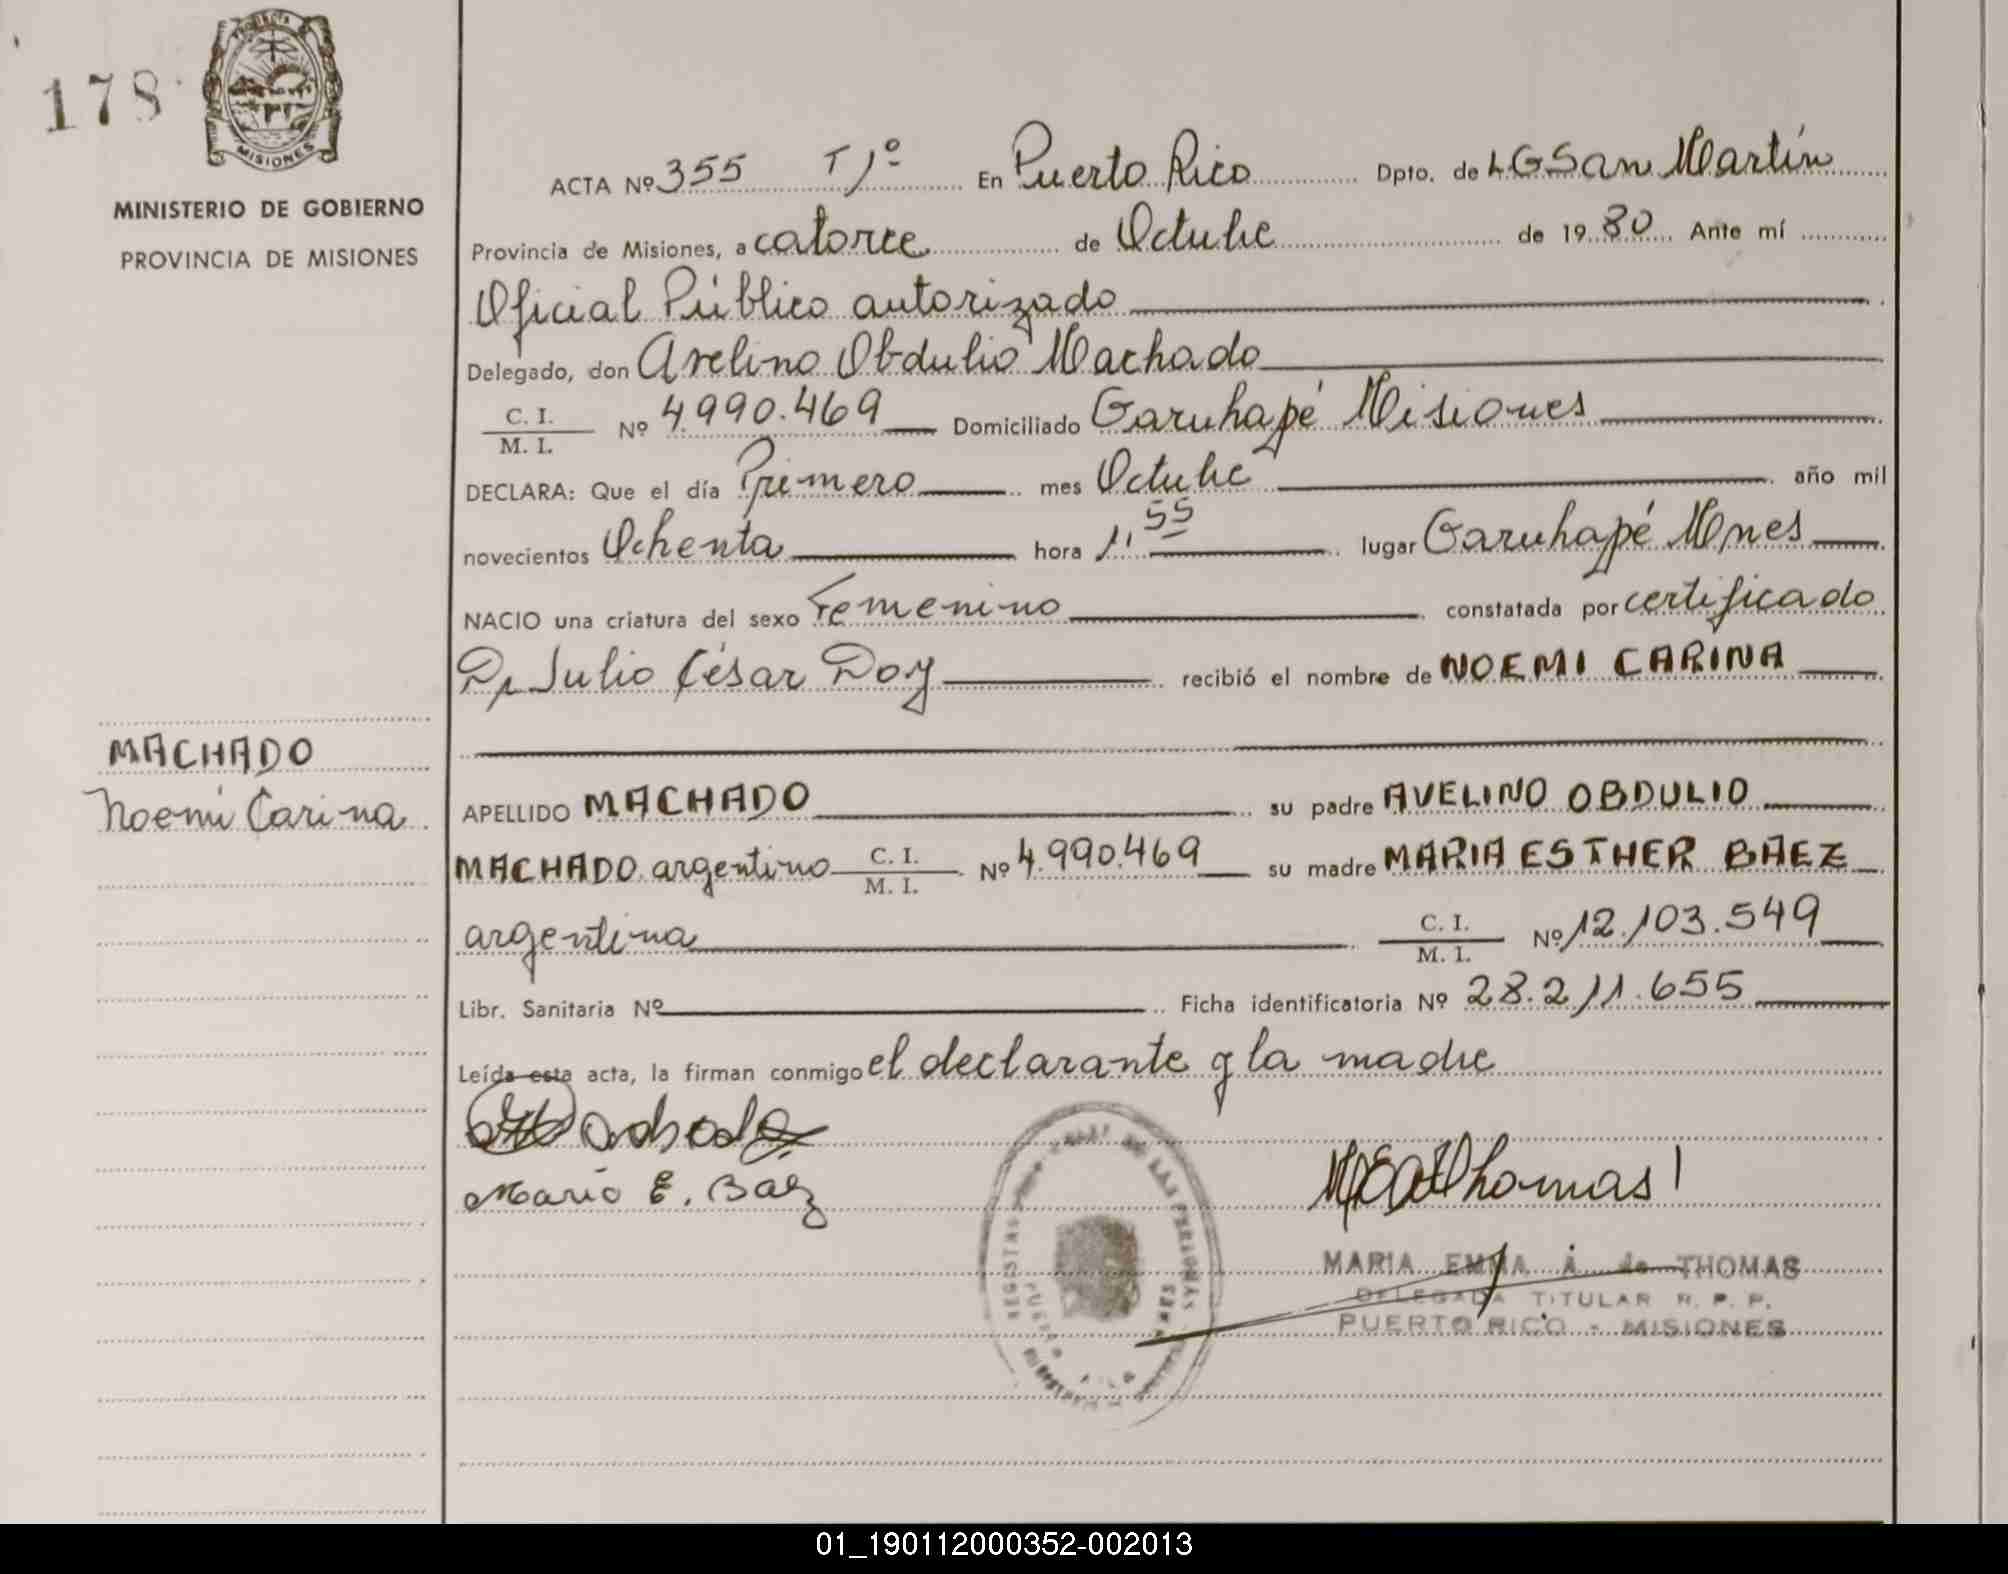 178
PROVINCIA
MISIONES
MINISTERIO DE GOBIERNO
PROVINCIA DE MISIONES
MACHADO
Noemi Carina
ACTA Nº 355 Tº 1º En Puerto Rico Dpto. de LGSan Martín
Provincia de Misiones, a catorce de Octubre de 1980 Ante mí
Oficial Público autorizado
Delegado, don Avelino Obdulio Machado
C. I.
M. I. Nº 4.990.469 Domiciliado Garuhapé Misiones
DECLARA: Que el día Primero mes Octubre año mil
novecientos Ochenta hora 1,55 lugar Garuhapé Mnes
NACIO una criatura del sexo Femenino constatada por certificado
Dr Julio César Doy recibió el nombre de NOEMI CARINA
APELLIDO MACHADO su padre AVELINO OBDULIO
MACHADO argentino C. I. M. I. Nº 4.990.469 su madre MARIA ESTHER BAEZ
argentina C. I. M. I. Nº 12.103.549
Libr. Sanitaria Nº Ficha identificatoria Nº 28.211.655
Leída esta acta, la firman conmigo el declarante y la madre
Maria E. Báez
Thomas
MARIA EMMA A. de THOMAS
DELEGADA TITULAR R. P. P.
PUERTO RICO - MISIONES
DE LAS PERSONAS
01_190112000352-002013